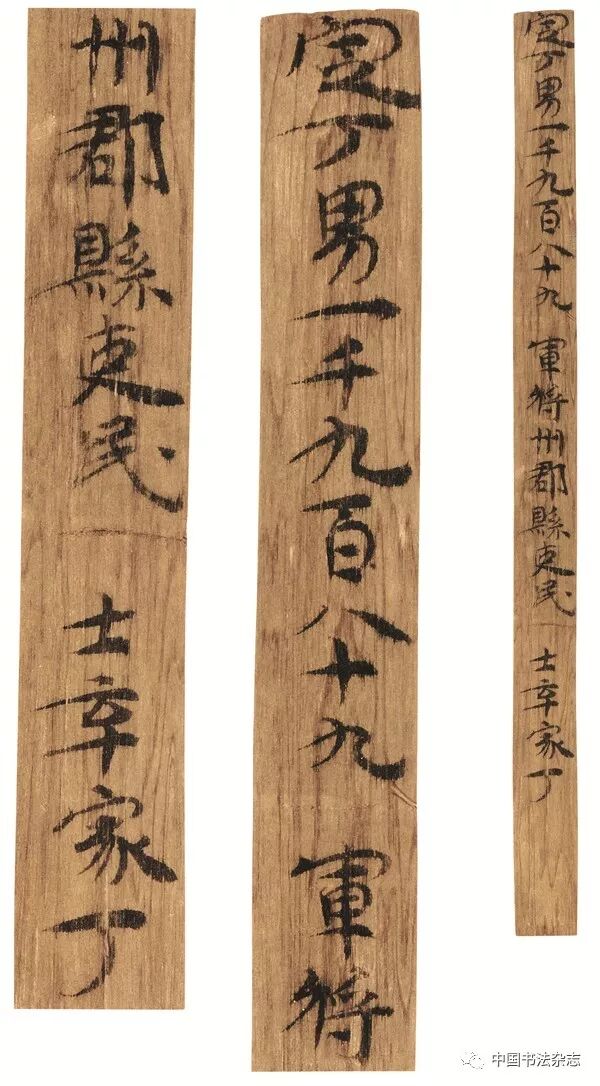 定丁男一千九百八十九 軍將州郡縣吏民 士卒家丁
定丁男一千九百八十九 軍將
州郡縣吏民 士卒家丁
中国书法杂志